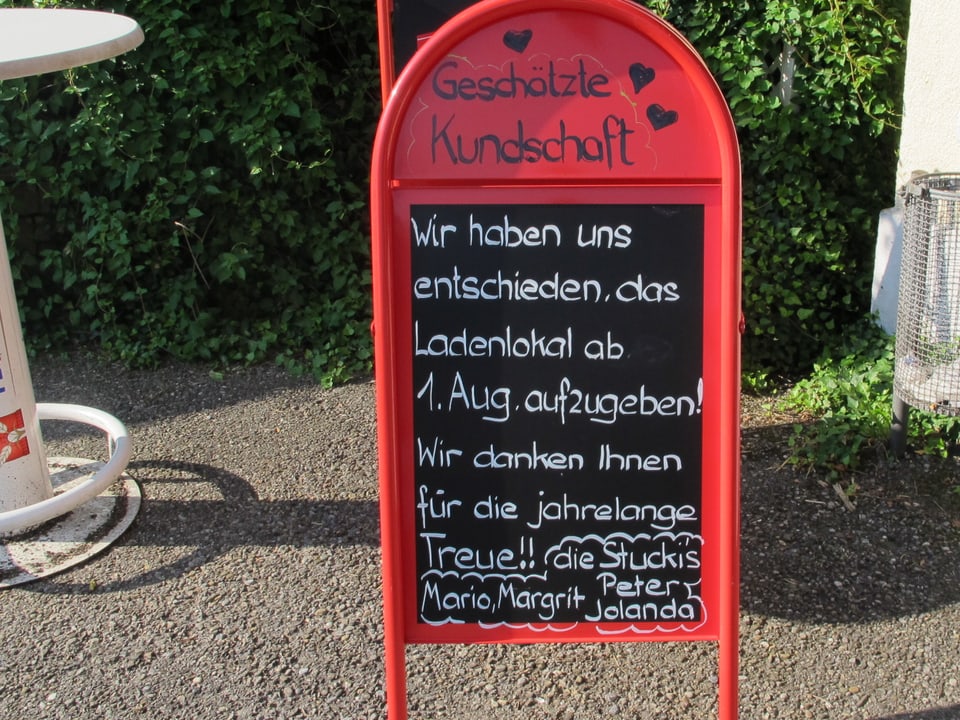 Geschätzte
Kundschaft
Wir haben uns
entschieden, das
Ladenlokal ab
1. Aug. aufzugeben!
Wir danken Ihnen
für die jahrelange
Treue!! die Stucki's
Mario, Margrit Peter
Jolanda